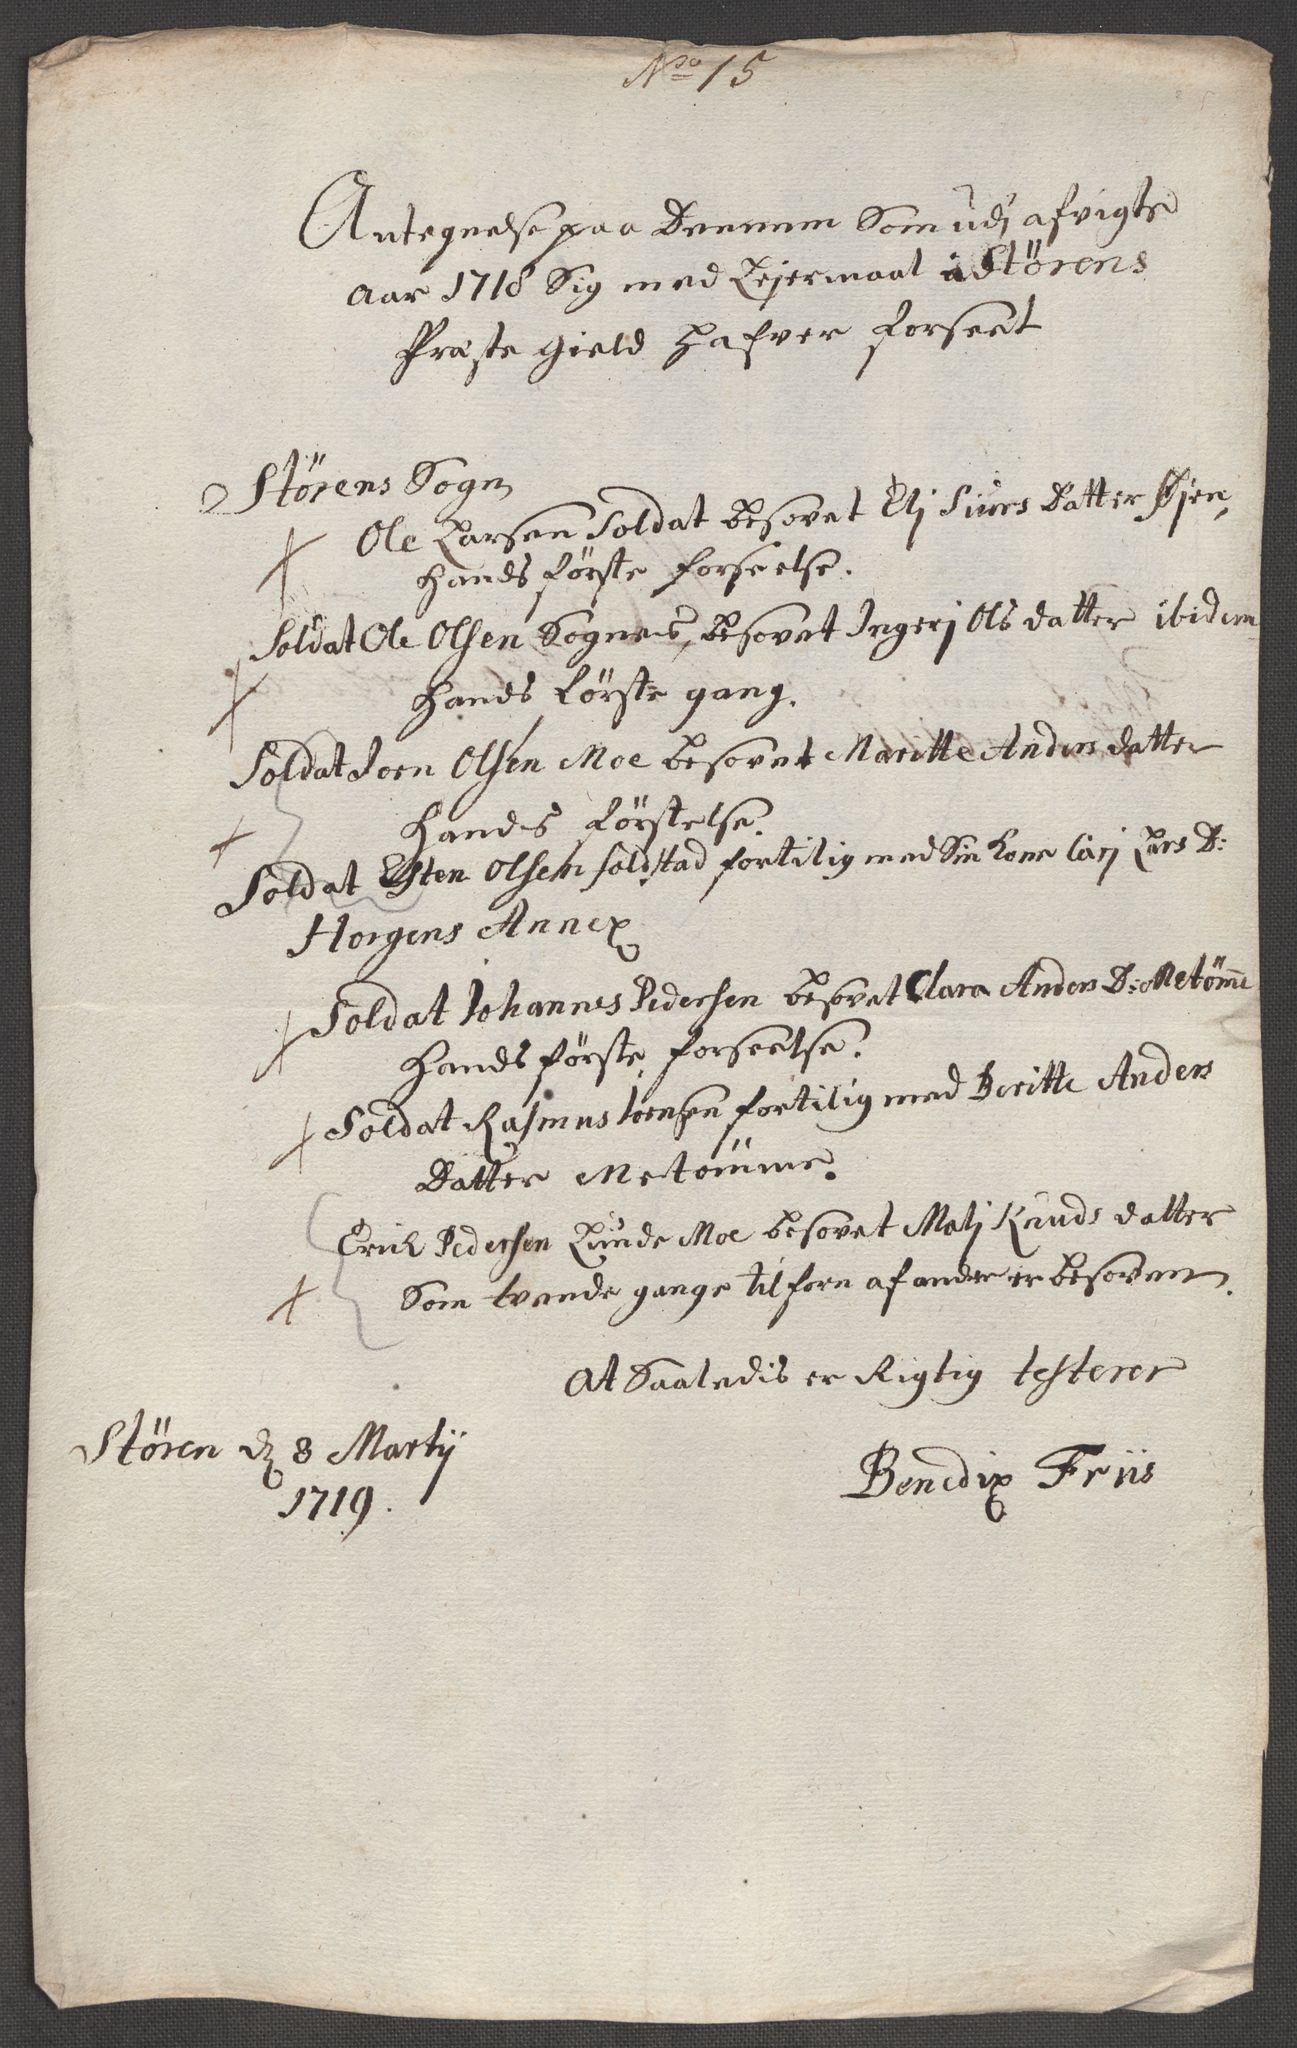 No 15
Antegnelse paa Dennem Som udj afvigte
Aar 1718 Sig med Lejermaal i Störens
Præste gield hafver forseet
Störens Sogn
Ole Larsen Soldat besovet Elj Siurs Datter Øjen,
hands förste forseelse.
Soldat Ole Olsen Sognes, besovet Ingerj Ols datter ibidem
hands förste gang.
Soldat Joen Olsen Moe besovet Maritte Anders datter
hands förstelse.
Soldat Esten Olsen foldstad fortilig med Sin kone Carj Lars D:
Horgens Annex
Soldat Johannes Pedersen besovet Clara Anders D: Metömme
hands förste forseelse.
Soldat Rasmus Joensen fortilig med Beritte Anders
Datter Metömme.
Erick Pedersen Lunde Moe besovet Malj Knuds datter
Som tvende gange tilforn af andre er besovem.
At Saaledis er Rigtig testerer
Stören d 8 Martij
1719.
Benedix Friis